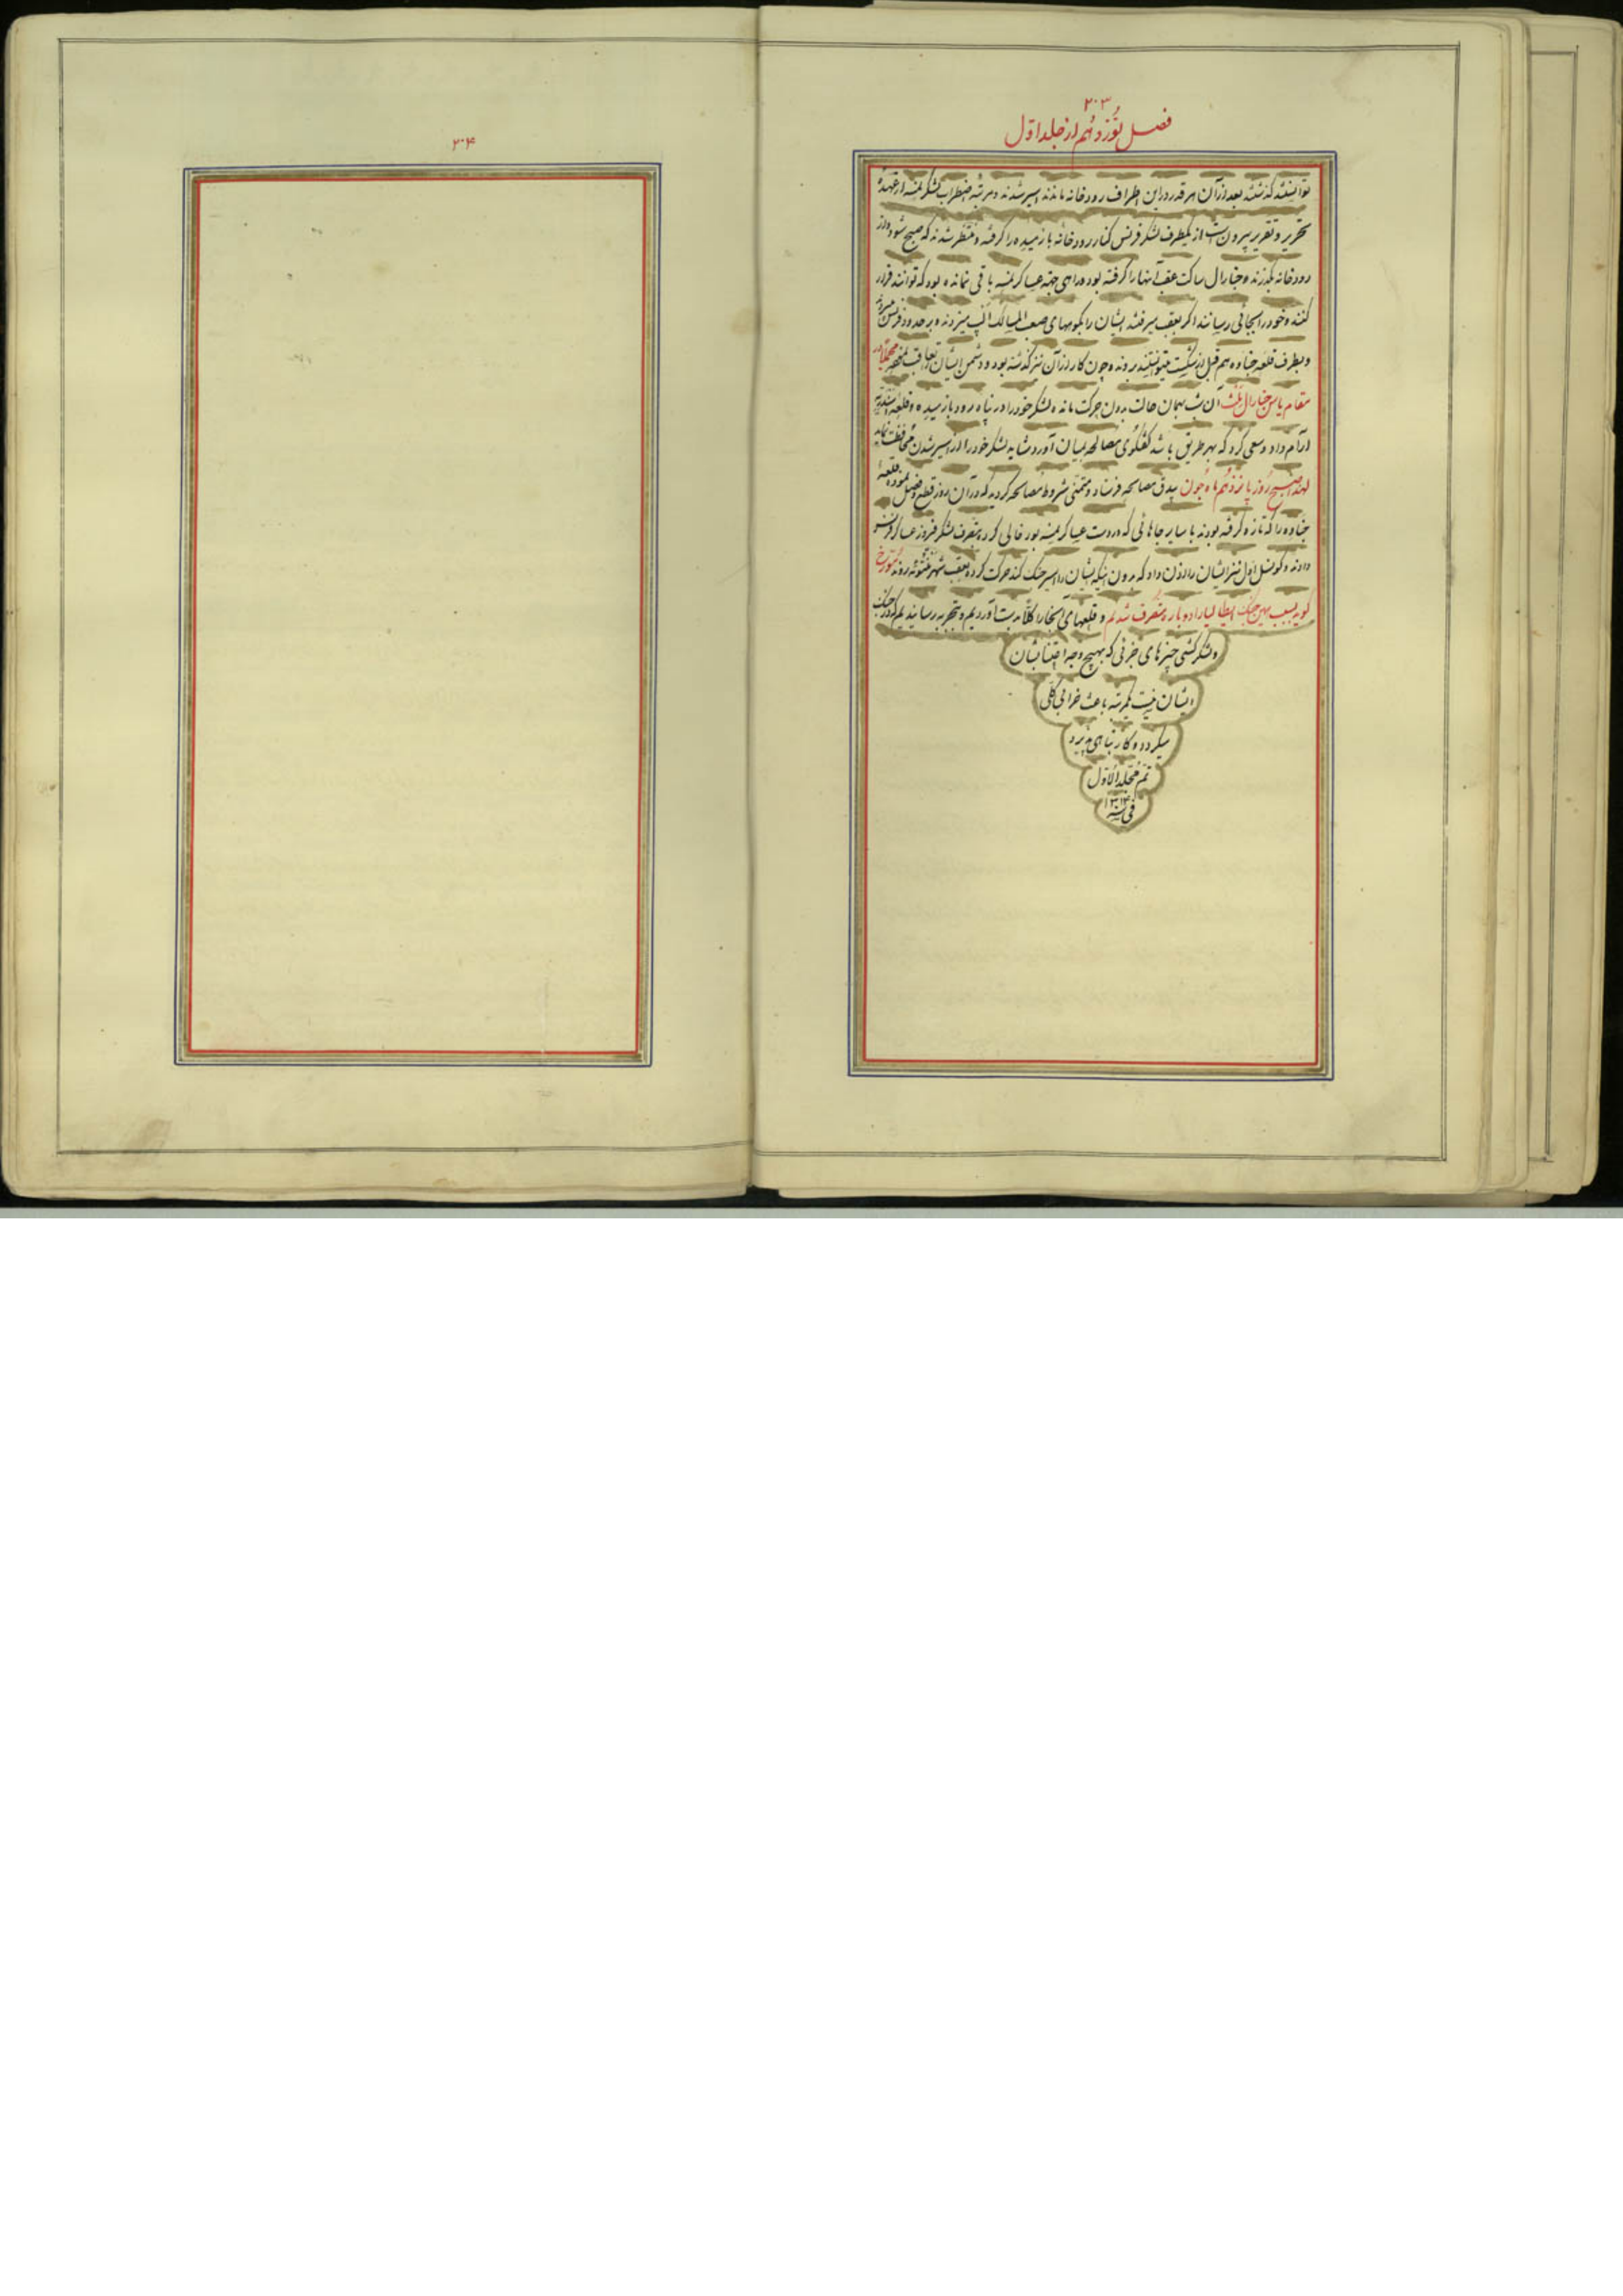 ۲۰۳
فصل نوزدهم از جلد اوّل
توانستند گذشتند بعد از آن هر قدر در این اطراف رودخانه ماندند اسیر شدند و مرتبه اضطراب لشکر نمسه از عهدهٔ
تحریر و تقریر بیرون است از یکطرف لشکر فرانس کنار رودخانه بازمیده را گرفته و منتظر شدند که صبح شود و از
رودخانه بگذرند و جنارال ساکت عقب آنها را گرفته بود و راهی جهة عساکر نمسه باقی نمانده بود که توانند فرار
کنند و خود را بجائی رسانند اگر بعقب میرفتند ایشان را بکوههای صعب المسالک الپ میزدند و بر حدود فرانس
و بطرف قلعه جناوه هم قبل از شکست میتوانستند بروند و چون کار از آن نیز گذشته بود و دشمن ایشان را تعاقب
مقام یاس جنارال آن شب بهمان حالت بدون حرکت مانده لشکر خود را در پناه رود بازمیده و قلعه
آرام داد و سعی کرد که بهر طریق باشد گفتگوی مصالحه بمیان آورد شاید لشکر خود را از اسیر شدن محافظت نماید
لهذا صبح روز پانزدهم ماه جون بیدق مصالحه فرستاد و متمنّی شروط مصالحه گردید که در آن روز قطع و فصل نموده قلعهٔ
جناوه را که تازه گرفته بودند با سایر جاهائی که در دست عساکر نمسه بود خالی کرد بتصرف لشکر فیروز عساکر فرانس
دادند و کونسل اول نیز ایشان را اذن داد که بدون اینکه ایشان را اسیر جنک کند حرکت کرده بعقب شهر منتوئه روند مورخ
کوید بسبب همین جنک ایطالیا را دوباره متصرف شدیم و قلعهای آنجا را کلاً بدست آوردیم و بتجربه رسانیدیم که در جنک
و لشکر کشی چیزهای جزئی که بهیچ وجه اعتنا بشان
ایشان نیست یکمرتبه باعث خرابی کلّی
میکردد و کار بتباهی میبرد
تمّ مجلد الاوّل
فی سنه ۱۳۱۴
۲۰۴